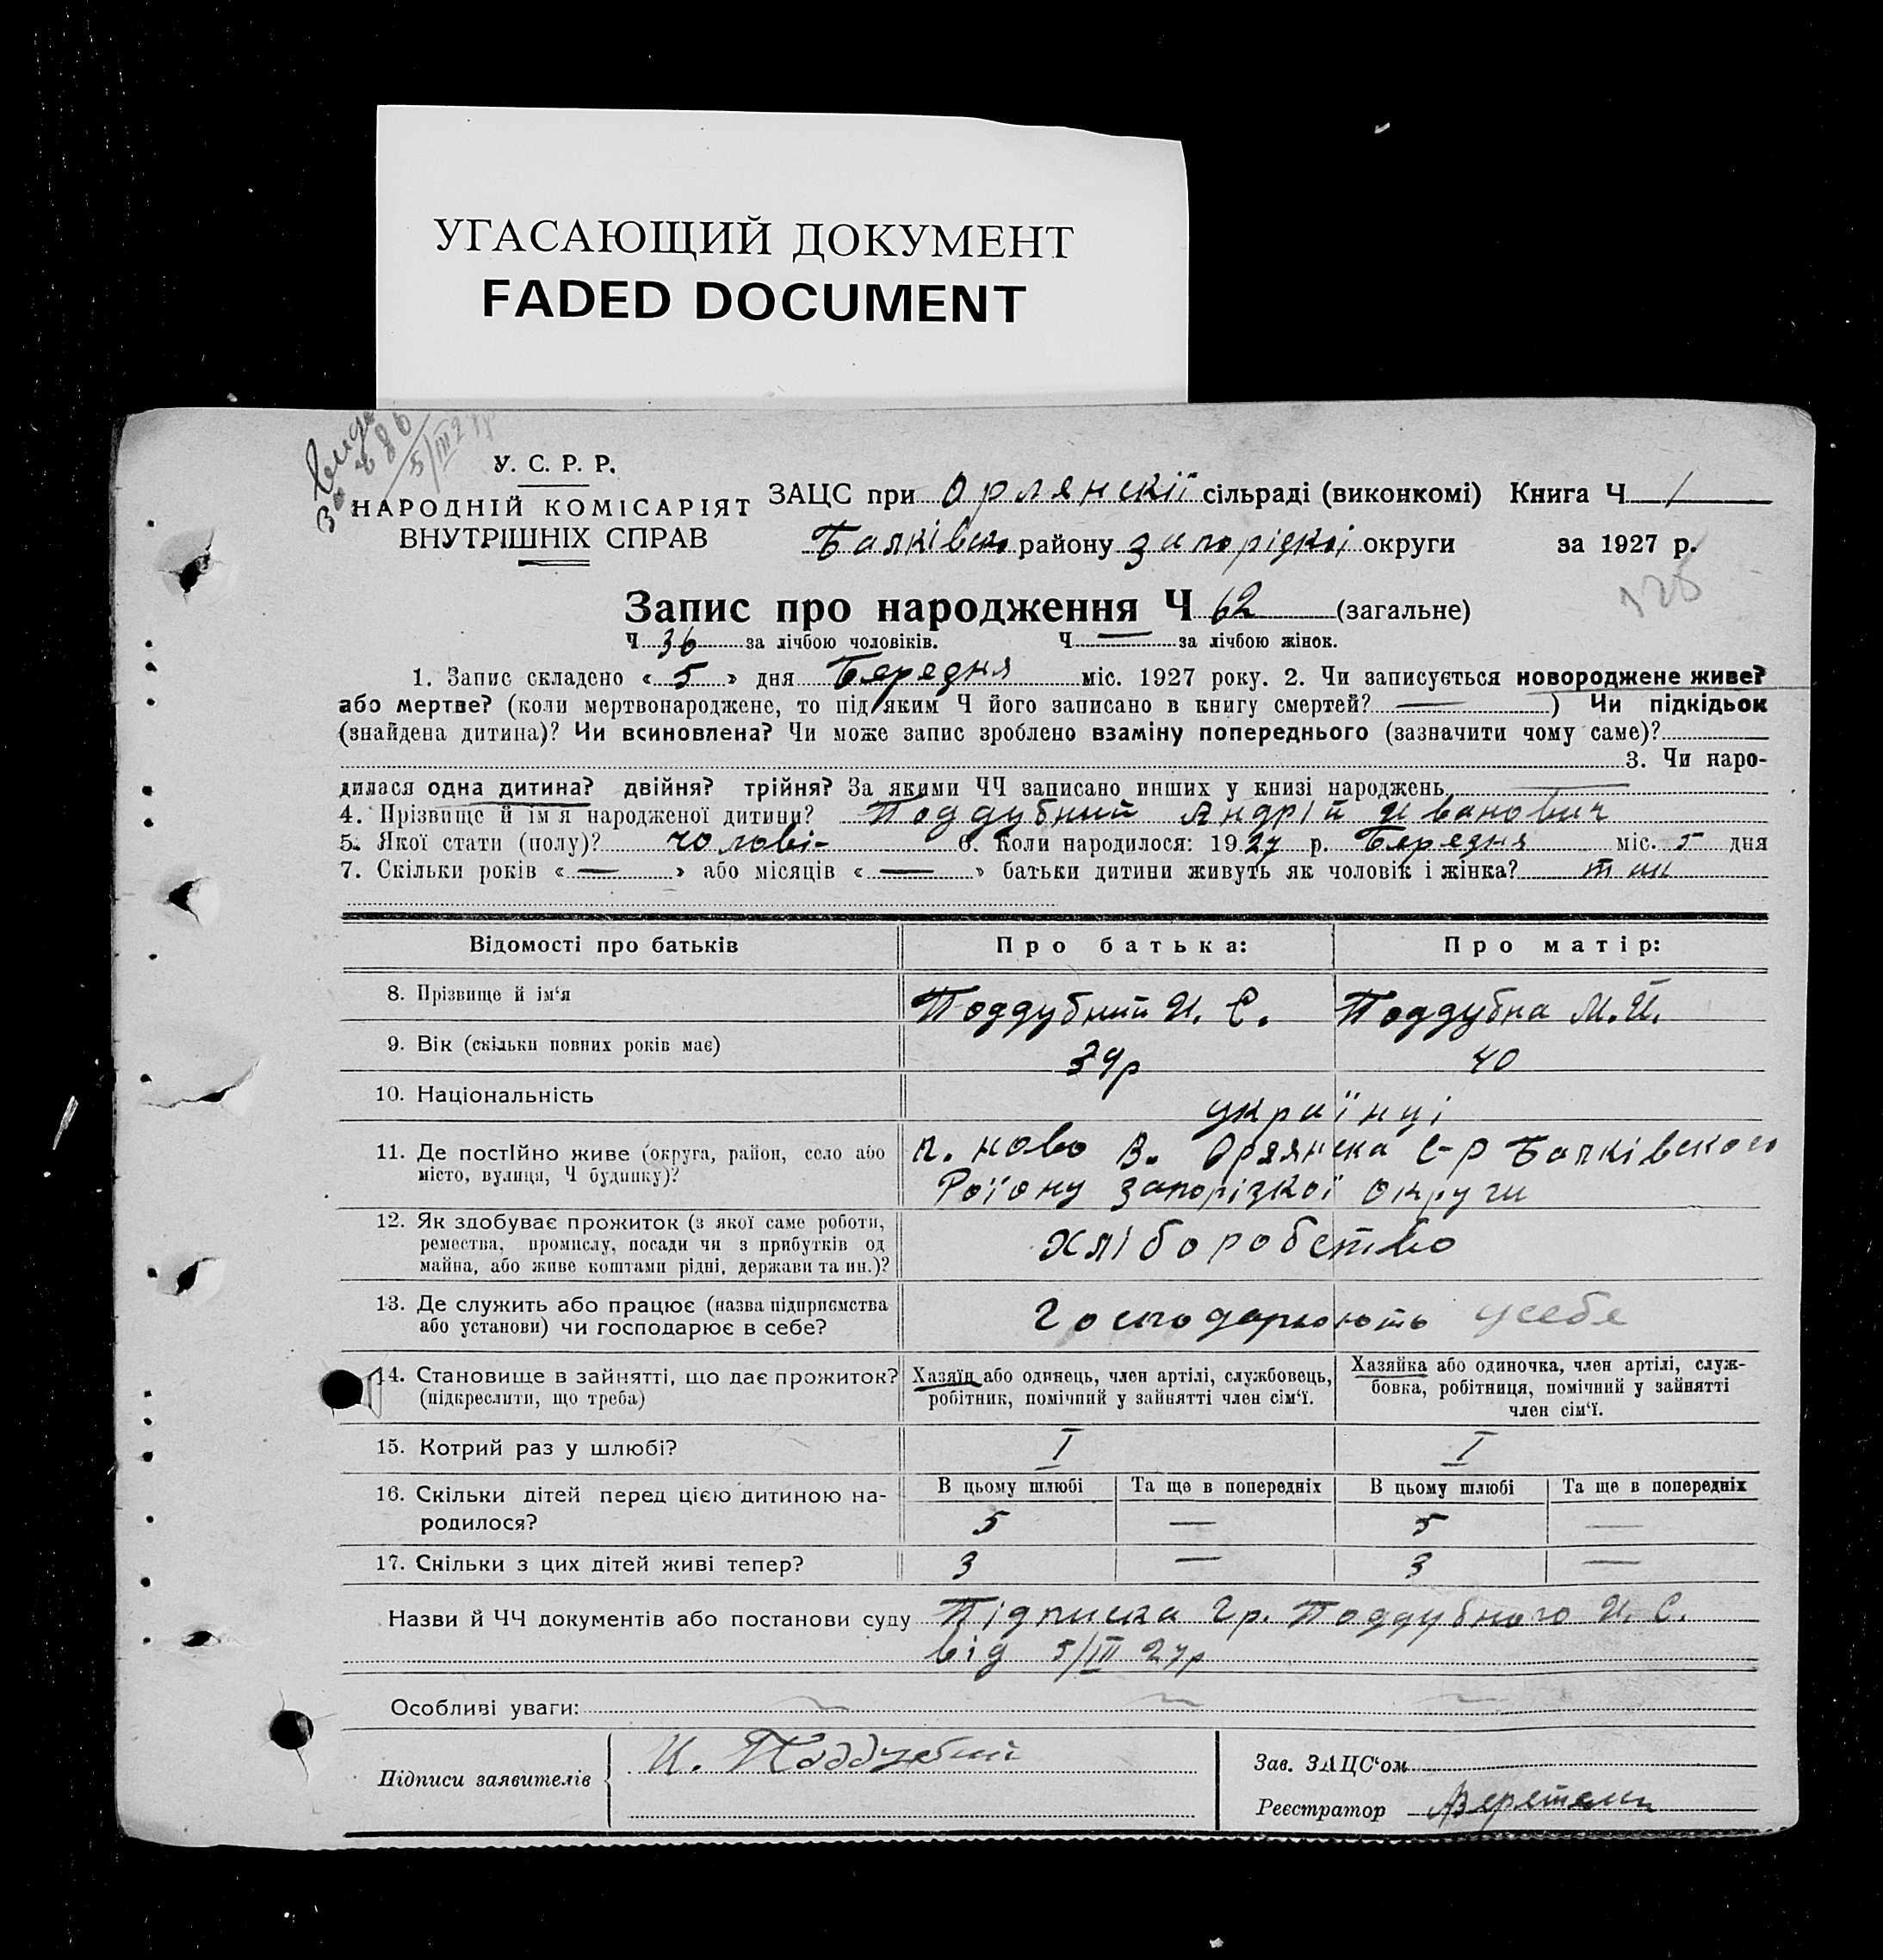 УГАСАЮЩИЙ ДОКУМЕНТ
FADED DOCUMENT
5/III 27р
У. С. Р. Р.
НАРОДНІЙ КОМІСАРІЯТ
ВНУТРІШНІХ СПРАВ
ЗАЦС при Орлянскії сільраді (виконкомі) Книга Ч 1
Балківско району Запорідкої округи за 1927 р.
Запис про народження Ч 62 (загальне)
Ч 36 за лічбою чоловіків. Ч — за лічбою жінок.
1. Запис складено « 5 » дня Бередня міс. 1927 року. 2. Чи записується новороджене живе?
або мертве? (коли мертвонароджене, то під яким Ч його записано в книгу смертей? — ) Чи підкідьок
(знайдена дитина)? Чи всиновлена? Чи може запис зроблено взаміну попереднього (зазначити чому саме)?
3. Чи наро-
дилася одна дитина? двійня? трійня? За якими ЧЧ записано инших у книзі народжень —
4. Прізвище й ім'я народженої дитини? Поддубний Андрій Иванович
5. Якої стати (полу)? чолові- 6. Коли народилося: 1927 р. Бередня міс. 5 дня
7. Скільки років « — » або місяців « — » батьки дитини живуть як чоловік і жінка?
Відомості про батьків Про батька: Про матір:
8. Прізвище й ім'я Поддубний И. С. Поддубна М. И.
9. Вік (скільки повних років має) 39р 40
10. Національність українці
11. Де постійно живе (округа, район, село або місто, вулиця, Ч будинку)? п. ново В. Орлянска С-р Балківского
Роїону Запорізкої округи
12. Як здобуває прожиток (з якої саме роботи,
ремества, промислу, посади чи з прибутків од
майна, або живе коштами рідні, держави та ин.)? хліборобство
13. Де служить або працює (назва підприємства
або установи) чи господарює в себе? Господарюють усебе
14. Становище в зайнятті, що дає прожиток?
(підкреслити, що треба)
Хазяїн або одинець, член артілі, службовець,
робітник, помічний у зайнятті член сім'ї.
Хазяйка або одиночка, член артілі, служ-
бовка, робітниця, помічний у зайнятті
член сім'ї.
15. Котрий раз у шлюбі? I I
16. Скільки дітей перед цією дитиною на-
родилося?
В цьому шлюбі Та ще в попередніх В цьому шлюбі Та ще в попередніх
5 — 5 —
17. Скільки з цих дітей живі тепер? 3 — 3 —
Назви й ЧЧ документів або постанови суду Підписка гр. Поддубного И. С.
від 5/III 27р
Особливі уваги:
Підписи заявителів И. Поддубний
Зав. ЗАЦС'ом
Реєстратор